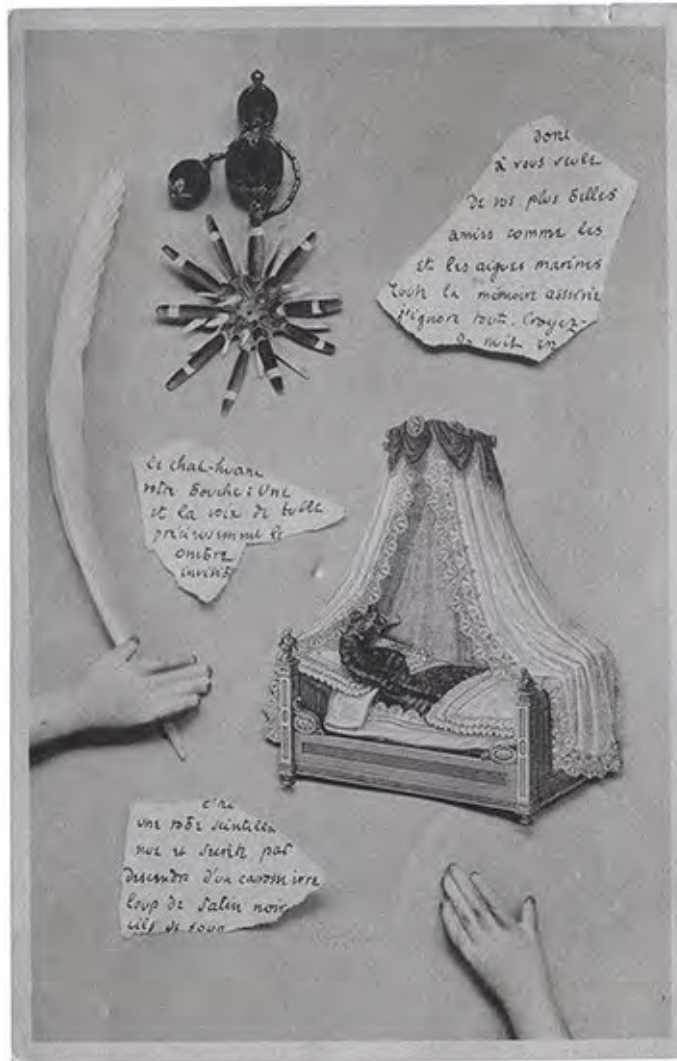 dont
à vous seule
de vos plus belles
amies comme les
et les aigues marines
toute la mémoire asservie
j'ignore tout. Croyez-
la nuit en
Le chat-huant
votre bouche : Une
et la voix de tulle
précieusement le
ombre
invisib
une robe scintilla
noire se secrète pas
descendre d'un carosse ivre
loup de satin noir
cils de sour